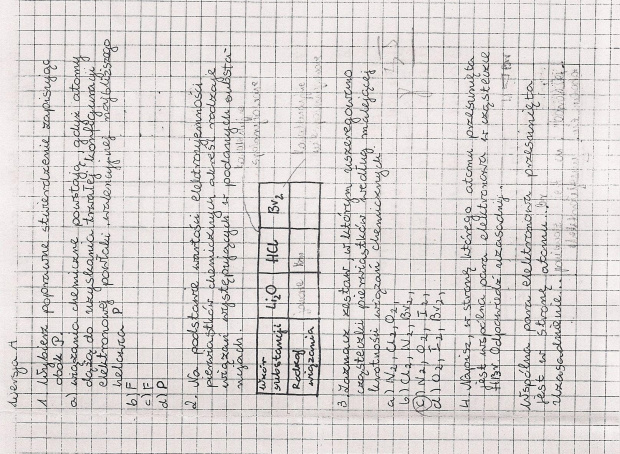 Wersja A
1. Wybierz poprawne stwierdzenie zapisując
obok P.
a) wiązania chemiczne powstają, gdyż atomy
dążą do uzyskania trwałej konfiguracji
elektronowej powłoki walencyjnej najbliższego
helowca P
b) F
c) F
d) P
2. Na podstawie wartości elektroujemności
pierwiastków chemicznych określ rodzaje
wiązań występujących w podanych substa-
ncjach.
Wzór substancji Li₂O HCl Br₂
Rodzaj wiązania
3. Zaznacz zestaw, w którym uszeregowano
cząsteczki pierwiastków według malejącej
trwałości wiązań chemicznych
a) N₂, Cl₂, O₂,
b) Cl₂, N₂, Br₂,
c) N₂, O₂, I₂,
d) O₂, I₂, Br₂,
4. Napisz, w stronę którego atomu przesunięta
jest wspólna para elektronowa w cząsteczce
HBr. Odpowiedź uzasadnij.
Wspólna para elektronowa przesunięta
jest w stronę atomu...
Uzasadnienie...